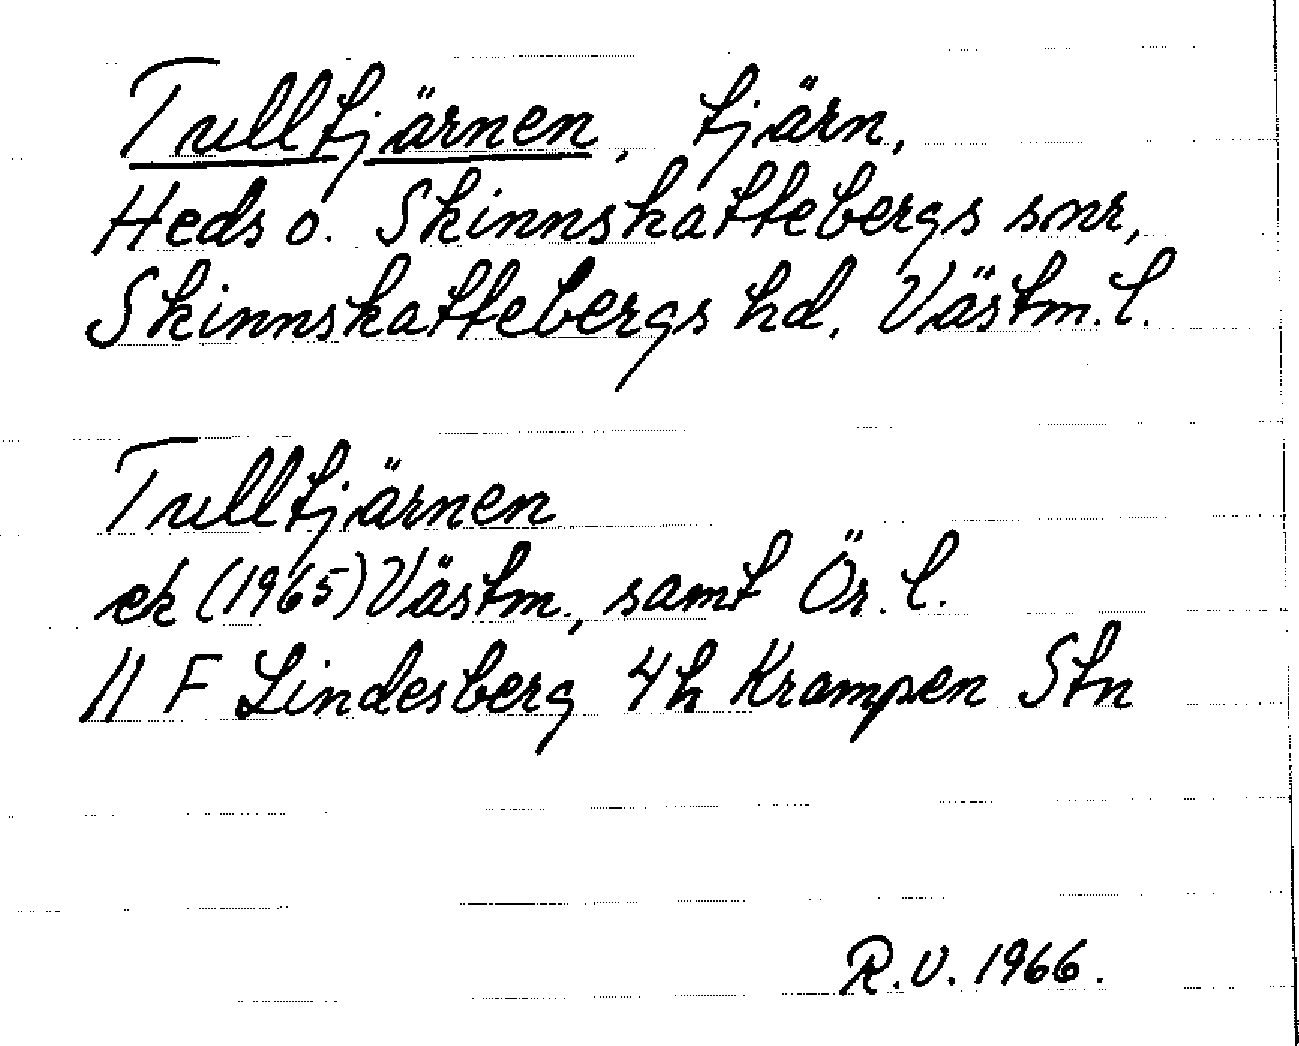 Tulltjärnen, tjärn,
Heds o. Skinnskattebergs snr,
Skinnskattebergs hd. Västm. l.
Tulltjärnen
ek (1965) Västm., samt Ör. l.
11 F Lindesberg 4h Krampen Stn
R.V. 1966.